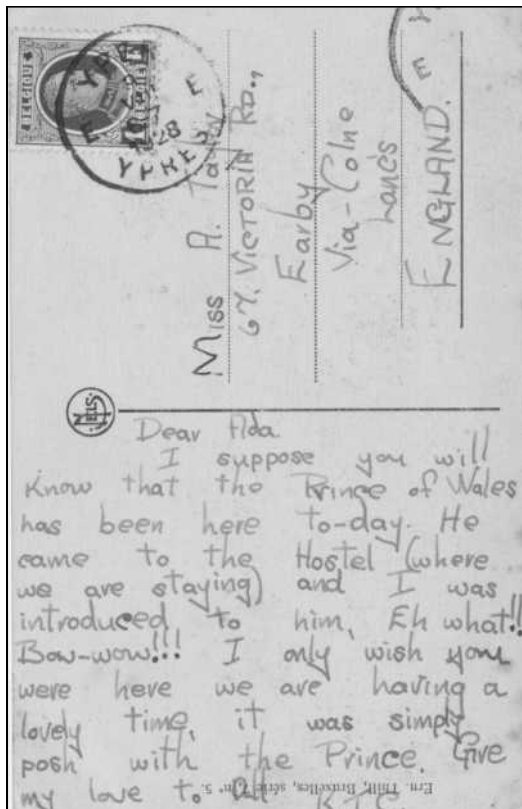 YPRES
28
MISS A. Tayl
67, VICTORIA RD.,
Earby
Via-Colne
Lancs
ENGLAND.
NELS
Dear Ada
I suppose you will
know that the Prince of Wales
has been here to-day. He
came to the Hostel (where
we are staying) and I was
introduced to him, Eh what!!
Bow-wow!!! I only wish you
were here we are having a
lovely time, it was simply
posh with the Prince. Give
my love to all
Ern. Thill, Bruxelles, série 7, n° 5.